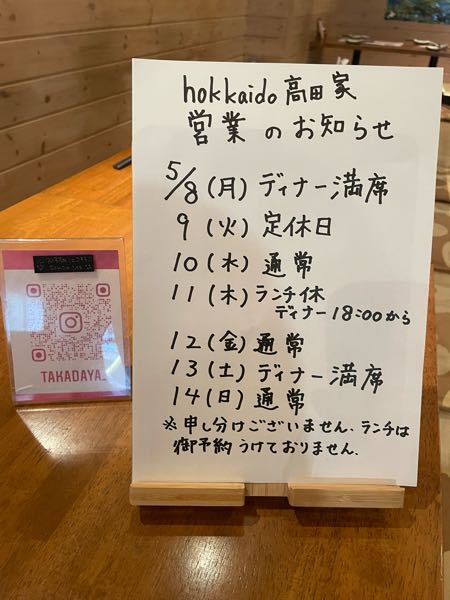 hokkaido 高田家
営業のお知らせ
5/8(月)ディナー満席
9(火)定休日
10(水)通常
11(木)ランチ休
ディナー18:00から
12(金)通常
13(土)ディナー満席
14(日)通常
※申し分けございません、ランチは
御予約うけておりません。
TAKADAYA_